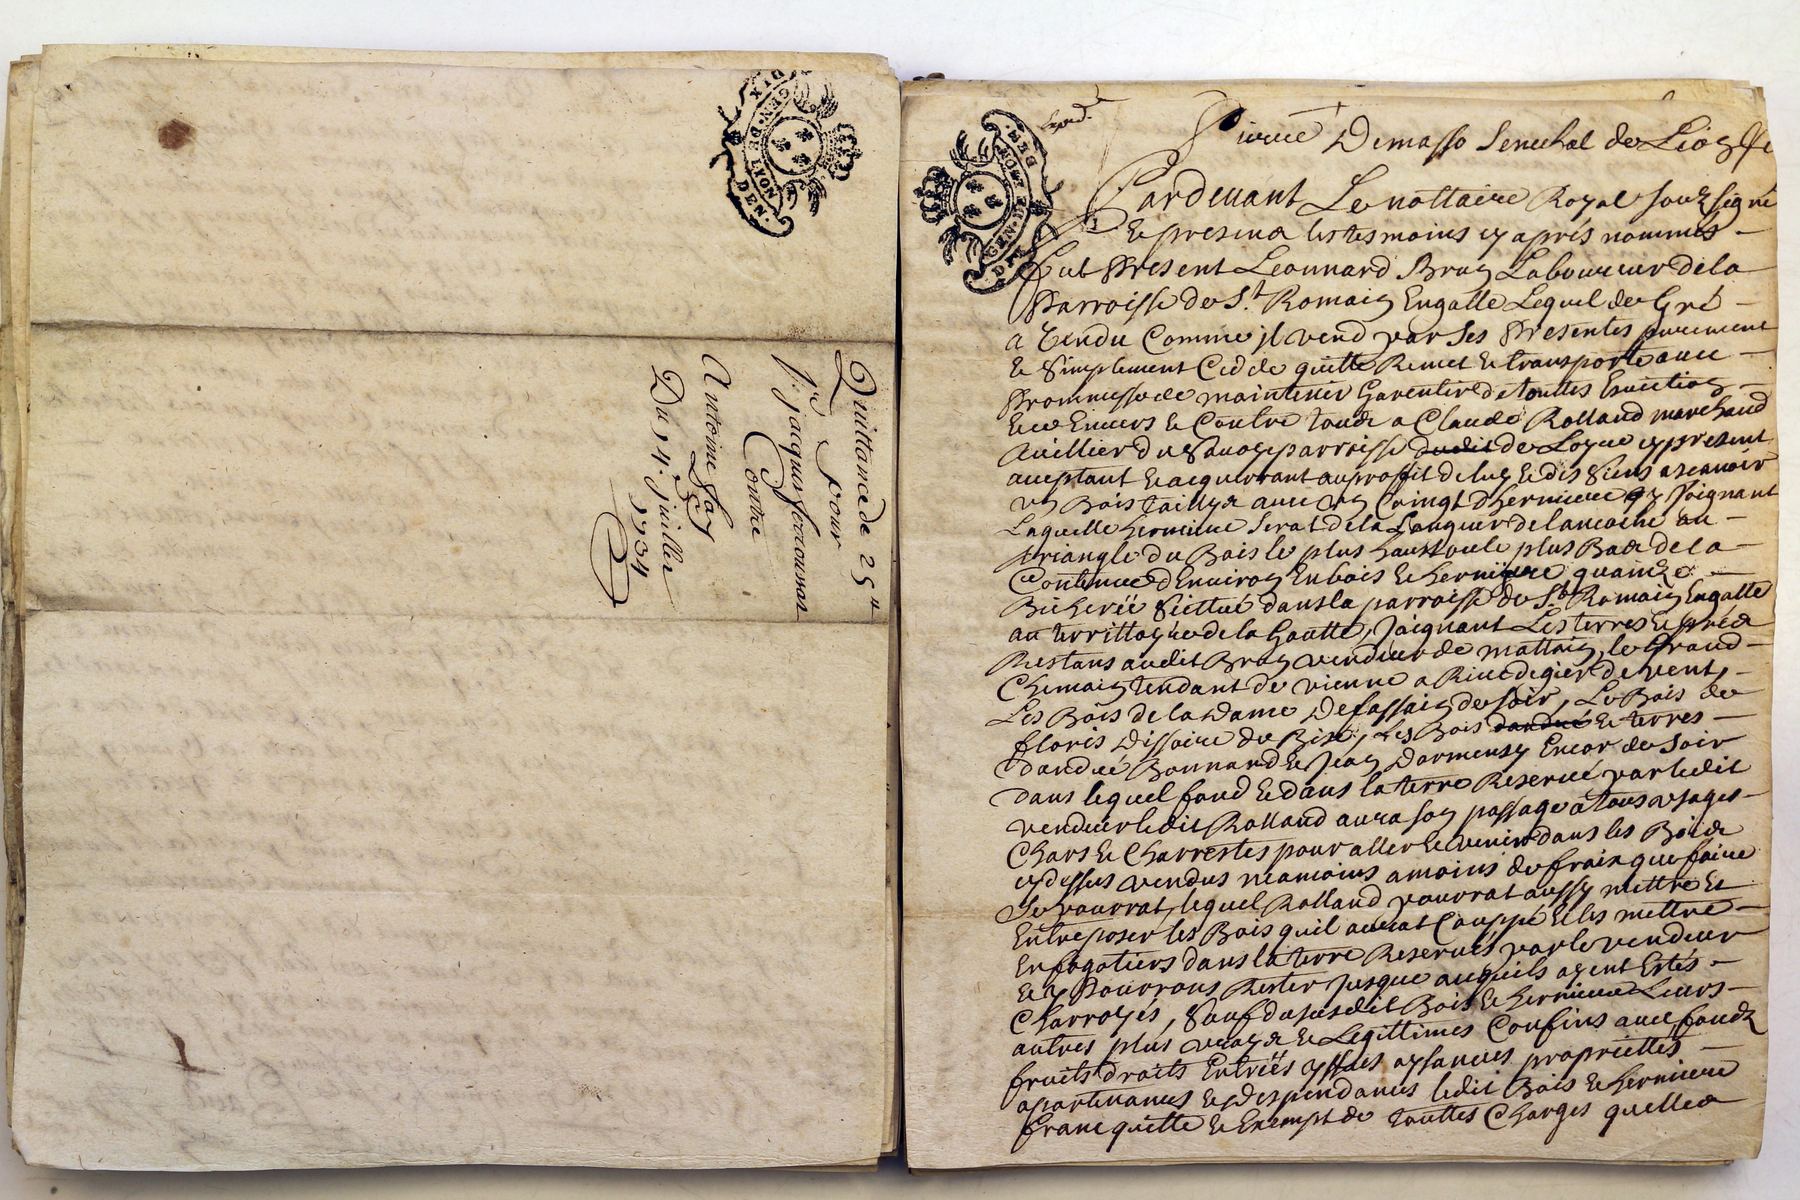 GEN. DE LYON
DIX DEN.
Quittance de 25"
pour
Sr. jacques
Contre
Antoine
Du 4 juillet
1734
GEN. DE LYON
DIX DEN.
Exped.
Pierre Demasso Senechal de Lion
Pardevant Le nottaire Royal souzsigné
Et presend les tesmoins cy aprés nommés
fut Present Leonnard Brun Laboureur de la
Parroisse de St Romain Engalle Lequel de Gré
a Vendu Comme jl vend par ses Presentes purement
Et Simplement Cedde quitte Remet Et transporte avec
Prommesse de maintenir Garentir de touttes Eviction
Envers Et Contre tous a Claude Rolland marchand
parroisse dudit de Loyre cy present
aceptant Et acquerant au proffit de luy Et des Siens a scavoir
un Bois taillys avec un herniere y Joignant
Laquelle herniere Serat de la Longueur de au
triangle du Bois le plus haut ou le plus Bas de la
Contenue d'Environ En bois Et herniere quainze
Bicheréé Scittué dans la parroisse de St Romain Engalle
au territtoyre de la Goutte, Joignant Les terres Et prés
Restans audit Brun vendeur de mattin, le Grand
Chemain tendant de vienne a Rive de gier de vent,
Les Bois de la Dame Defassain de soir, Le Bois de
floris Dissoire de Bize, Les Bois Et terres
dandré Bonnard Et Jean Dormeusy Encor de Soir
dans lequel fond Et dans la terre Reservé par ledit
vendeur ledit Rolland aura son passage a tous usages
Chars Et Charrettes pour aller Et venir dans les Bois
cy dessus vendus neamoins a moins de fraix que faire
Se pourrat, lequel Rolland pourrat aussy mettre Et
Entreposer les Bois quil aurat Couppé Et les mettre
En fagotiers dans la terre Reservés par le vendeur
Et y Pourrons Rester Jusque a quils ayent Estés
Charroyés, Sauf du susdit Bois Et herniere Leurs
autres plus vrays Et Legittimes Confins avec fondz
fruits droits Entréés yssües aysances propriettés
apartenances Et despendances ledit Bois Et herniere
franc quitte Et Exempt de touttes Charges quelles